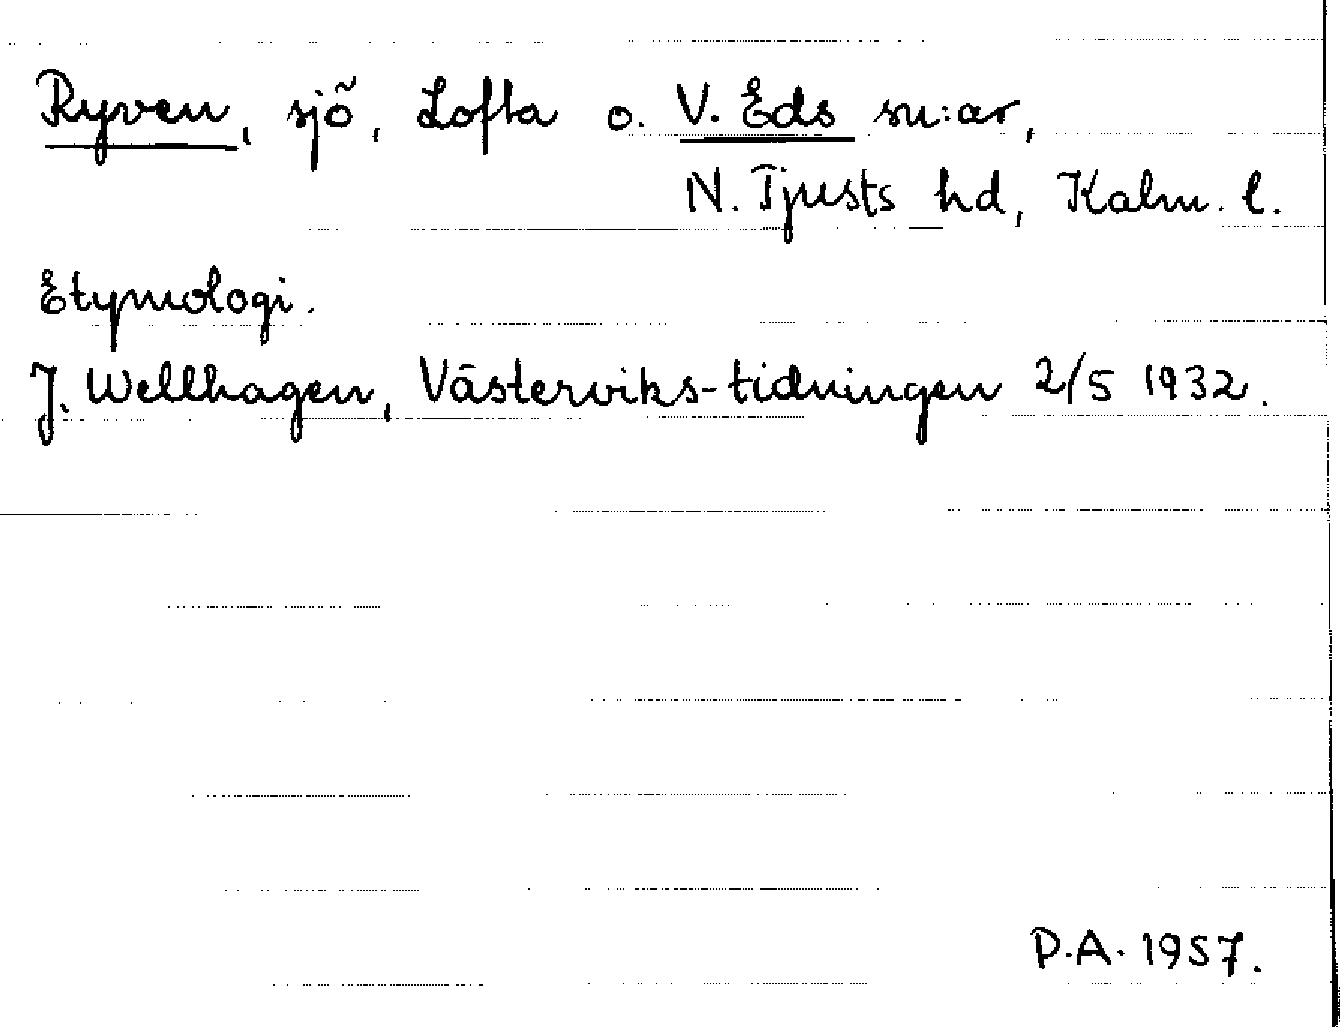 Ryven, sjö, Lofta o. V. Eds sn:ar,
N. Tjusts hd, Kalm. l.
Etymologi.
J. Wellhagen, Västerviks-tidningen 2/5 1932.
P.A. 1957.